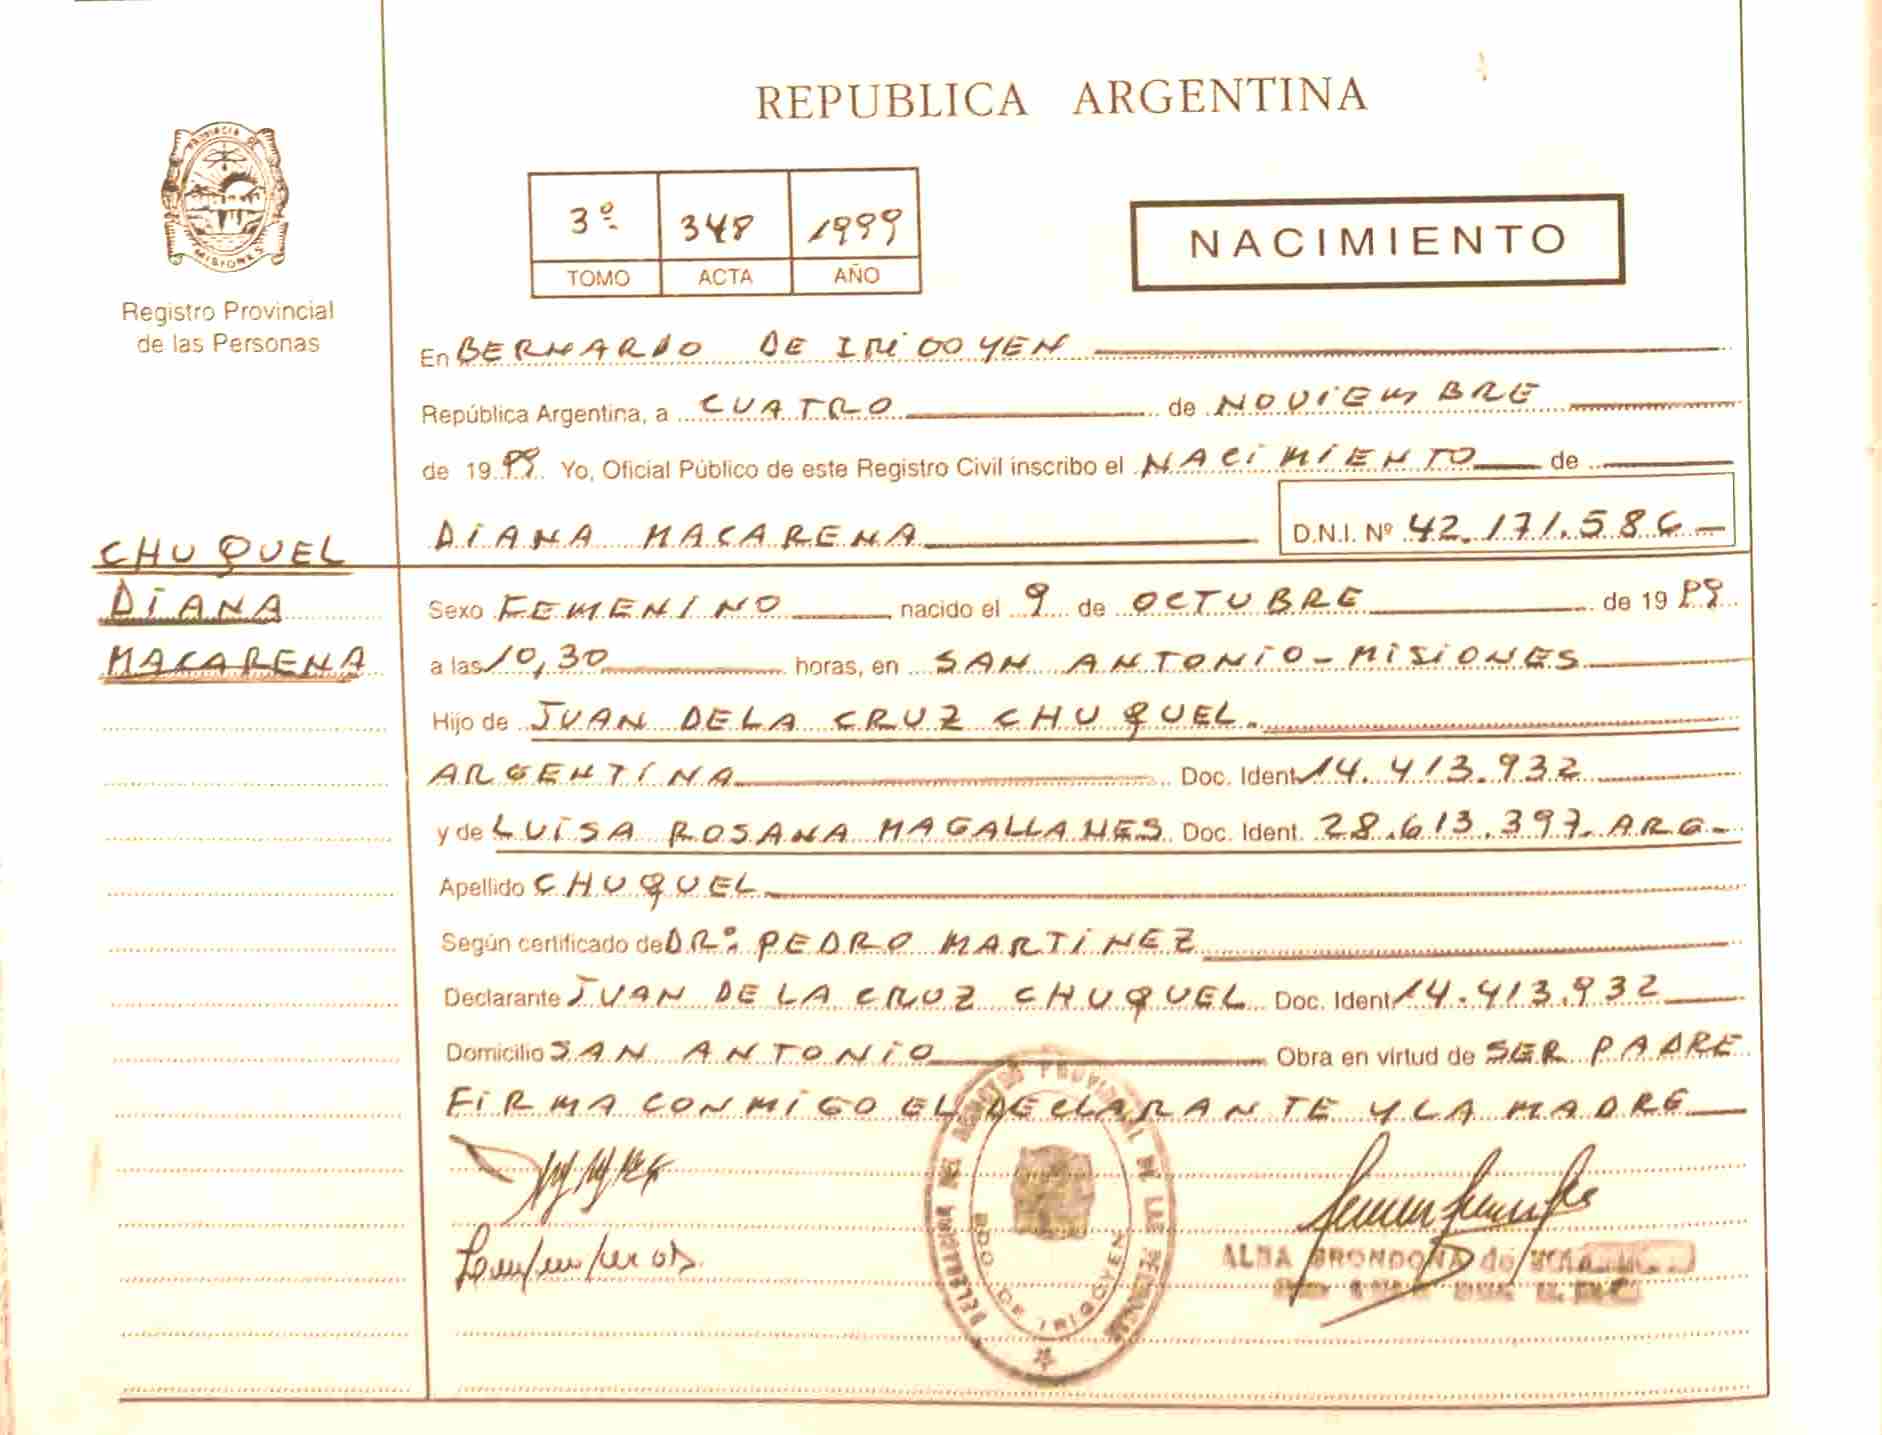 REPUBLICA ARGENTINA
PROVINCIA DE
MISIONES
Registro Provincial
de las Personas
3º 348 1999
TOMO ACTA AÑO
NACIMIENTO
En BERNARDO DE IRIGOYEN
República Argentina, a CUATRO de NOVIEMBRE
de 1999 Yo, Oficial Público de este Registro Civil inscribo el NACIMIENTO de
DIANA MACARENA D.N.I. Nº 42.171.586-
CHUQUEL
DIANA
MACARENA
Sexo FEMENINO nacido el 9 de OCTUBRE de 1999
a las 10,30 horas, en SAN ANTONIO-MISIONES
Hijo de JUAN DE LA CRUZ CHUQUEL.
ARGENTINA Doc. Ident. 14.413.932
y de LUISA ROSANA MAGALLANES Doc. Ident. 28.613.397. ARG-
Apellido CHUQUEL
Según certificado de DRº: PEDRO MARTINEZ
Declarante JUAN DE LA CRUZ CHUQUEL Doc. Ident 14.413.932
Domicilio SAN ANTONIO Obra en virtud de SER PADRE
FIRMA CONMIGO EL DECLARANTE Y LA MADRE
DELEGACION DEL REGISTRO PROVINCIAL DE LAS PERSONAS
BDO. DE IRIGOYEN
ALBA BRONDONA de